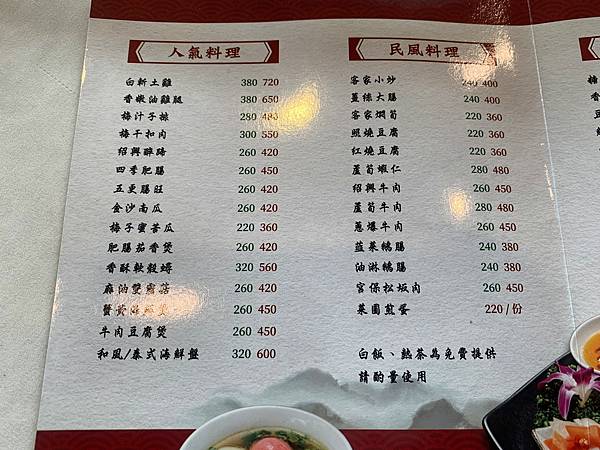 人氣料理
白斬土雞 380 720
香嫩油雞腿 380 650
梅汁子排 280 480
梅干扣肉 300 550
紹興醉蹄 260 420
四季肥腸 260 450
五更腸旺 260 420
金沙南瓜 260 420
梅子蜜苦瓜 220 360
肥腸茄香煲 260 420
香酥軟殼蟳 320 560
麻油雙霸菇 260 420
蟹黃 煲 260 450
牛肉豆腐煲 260 450
和風/泰式海鮮盤 320 600
民風料理
客家小炒 240 400
薑絲大腸 240 400
客家燜筍 220 360
照燒豆腐 220 360
紅燒豆腐 220 360
蘆筍蝦仁 280 480
紹興牛肉 260 450
蘆筍牛肉 280 480
蔥爆牛肉 260 450
韮菜鵝腸 240 380
油淋鵝腸 240 380
宮保松坂肉 260 450
菜圃煎蛋 220/份
白飯、熱茶為免費提供
請酌量使用